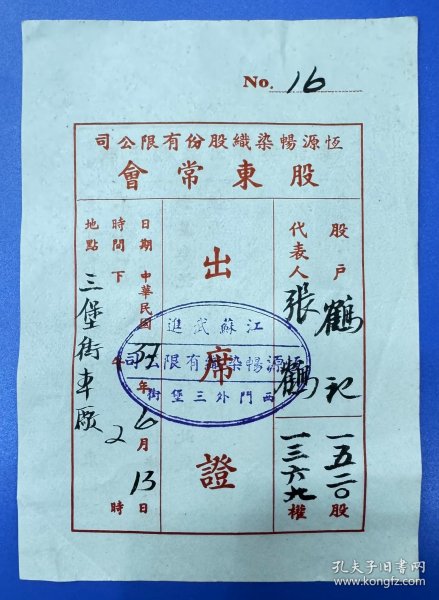 No. 16
恆源暢染織股份有限公司
股東常會
股戶 鶴記 一五二〇股
代表人 張鶴 一三六九權
出席證
日期 中華民國 年6月13日
時間 下午2時
地點 三堡街車廠
江蘇武進
恆源暢染織有限公司
西門外三堡街
孔夫子旧书网
www.kongfz.com